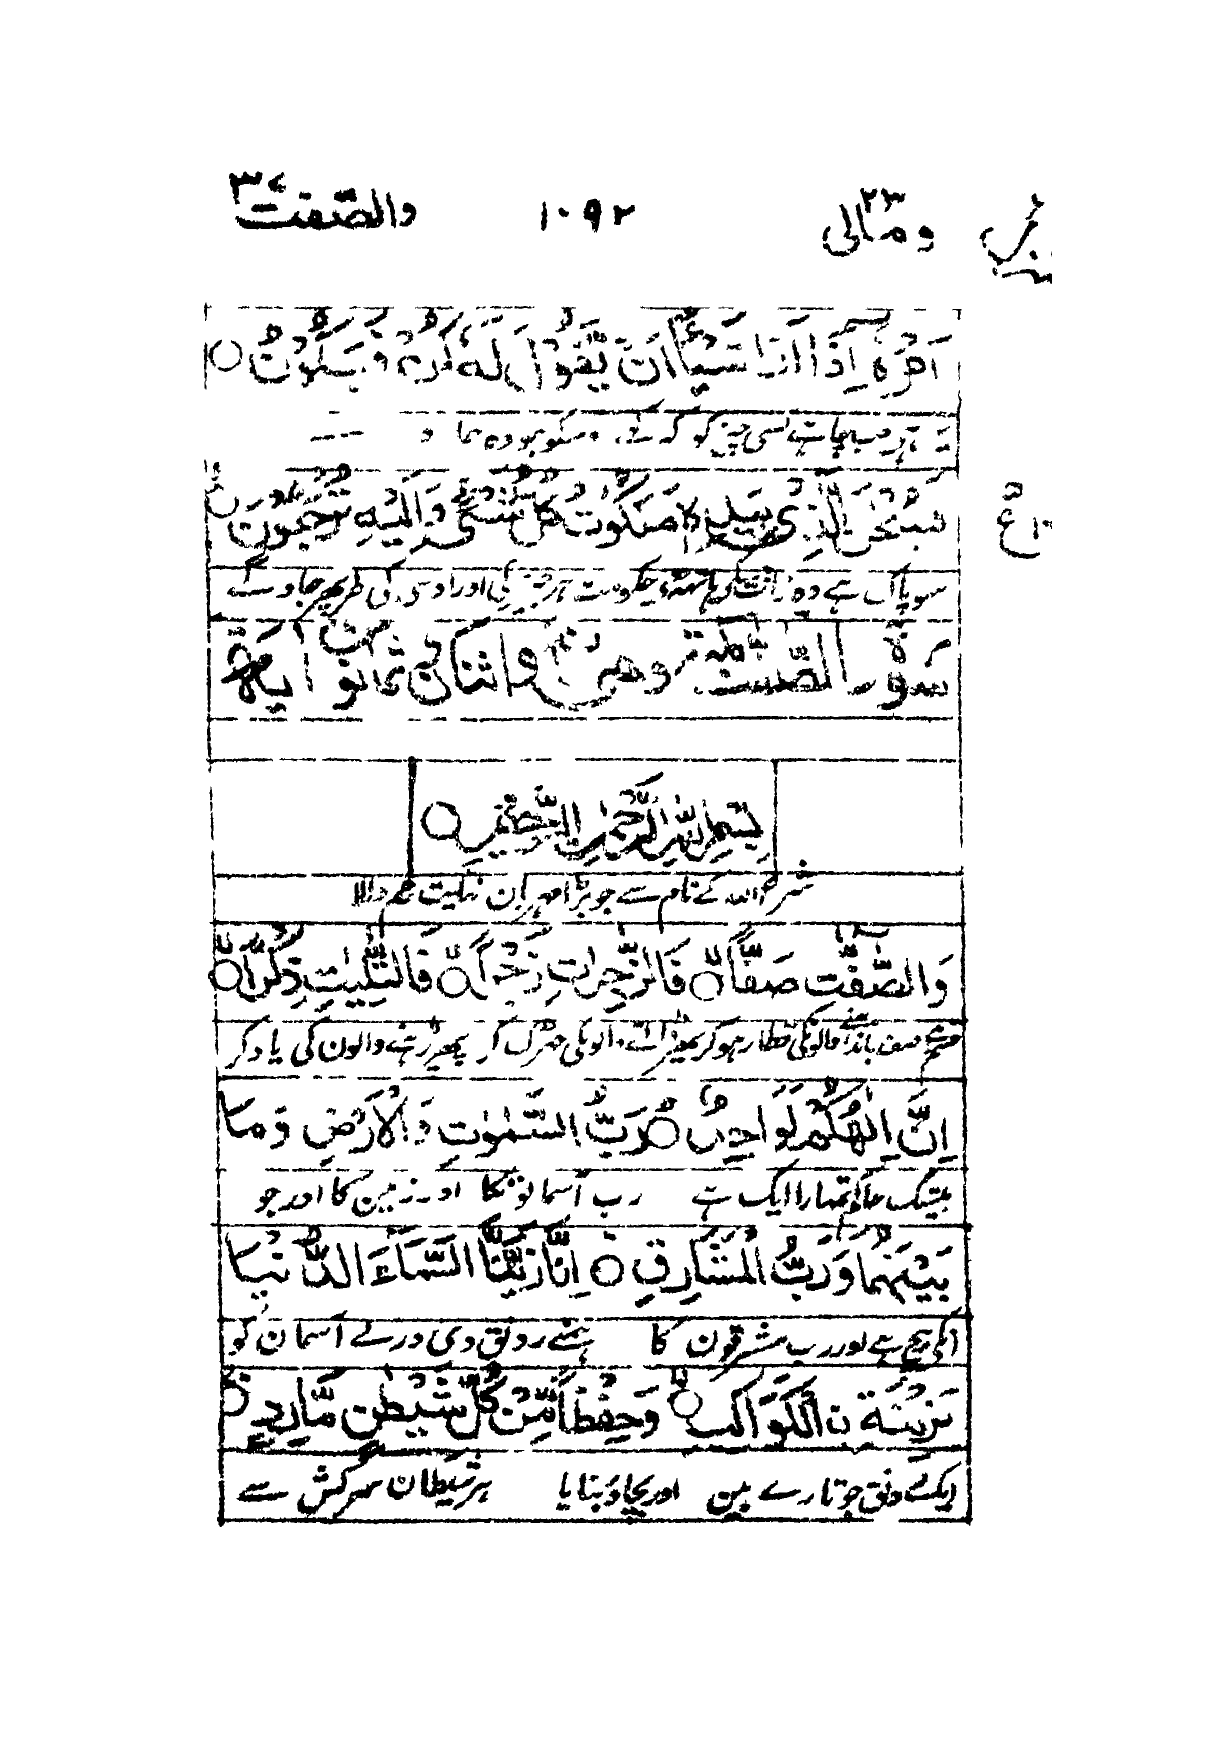 والصّٰفّٰت ٣٧ ١٠٩٢ ومالی ٢٣
اَمْرُهٗٓ اِذَآ اَرَادَ شَيْـًٔا اَنْ يَّقُوْلَ لَهٗ كُنْ فَيَكُوْنُ ○
چاہے کسی چیز کو کہ کہے ہو وہ
فَسُبْحٰنَ الَّذِيْ بِيَدِهٖ مَلَكُوْتُ كُلِّ شَيْءٍ وَّاِلَيْهِ تُرْجَعُوْنَ
ع ١٠
سو پاک ہے وہ ذات حکومت ہر چیز کی اور اوسی کی طرف پھر جاوگے
سورة الصّٰفّٰت مكية وهى واثنان ثمانون اية
بِسْمِ اللّٰهِ الرَّحْمٰنِ الرَّحِيْمِ ○
شروع اللہ کے نام سے جو بڑا مہربان نہایت رحم والا
وَالصّٰٓفّٰتِ صَفًّا ○ فَالزّٰجِرٰتِ زَجْرًا ○ فَالتّٰلِيٰتِ ذِكْرًا ○
قسم ہے صف باندھنے والونکی قطار ہو کر پھر ڈانٹنے والونکی جھڑک کر پھر پڑھنے والون کی یاد کر
اِنَّ اِلٰهَكُمْ لَوَاحِدٌ ○ رَبُّ السَّمٰوٰتِ وَالْاَرْضِ وَمَا
بیشک حاکم تمہارا ایک ہے رب آسمانونکا اور زمین کا اور جو
بَيْنَهُمَا وَرَبُّ الْمَشَارِقِ ○ اِنَّا زَيَّنَّا السَّمَآءَ الدُّنْيَا
انکی بیچ ہے اور رب مشرقون کا ہمنے رونق دی ورلے آسمان کو
بِزِيْنَةِ نِ الْكَوَاكِبِ ○ وَحِفْظًا مِّنْ كُلِّ شَيْطٰنٍ مَّارِدٍ
ایک رونق جو تارے ہین اور بچاو بنایا ہر شیطان سرکش سے